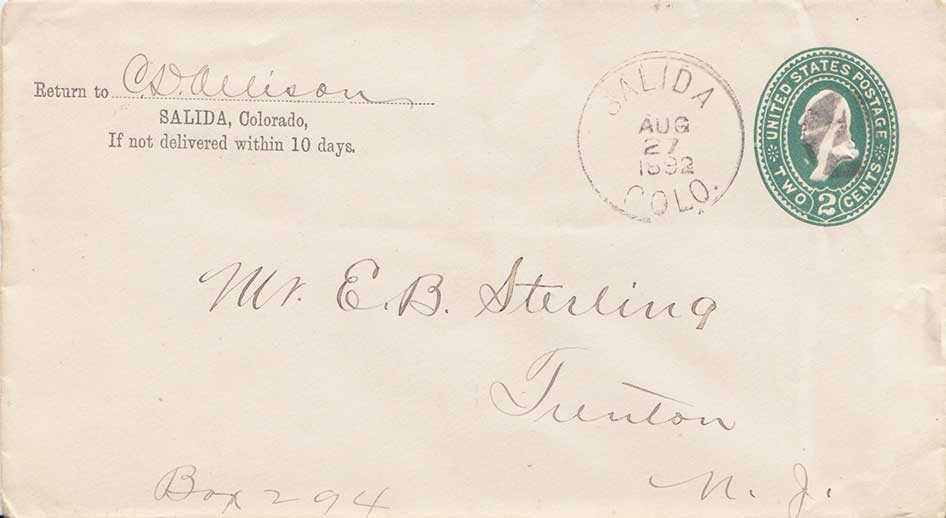 Return to C.D. Allison
SALIDA, Colorado,
If not delivered within 10 days.
SALIDA
AUG
27
1892
COLO.
UNITED STATES POSTAGE
TWO 2 CENTS
Mr. E. B. Sterling
Trenton
Box 294
N. J.